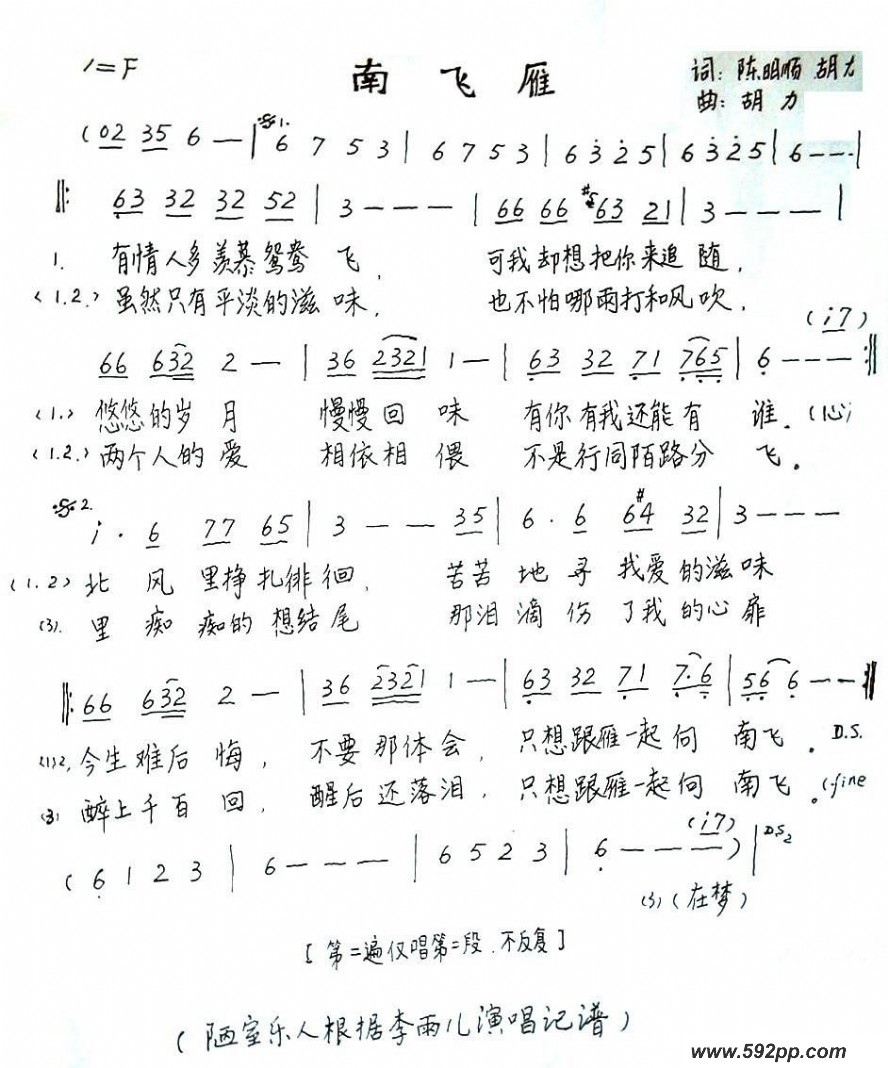 1=F
南飞雁
词:陈明顺 胡力
曲:胡力
(02 35 6 — | 𝄋1. 6 7 5 3 | 6 7 5 3 | 6 3 2 5 | 6 3 2 5 | 6 - - - |
‖: 63 32 32 52 | 3 — — — | 66 66 #563 21 | 3 — — — |
1. 有情人多羡慕鸳鸯飞, 可我却想把你来追随,
(1.2.) 虽然只有平淡的滋味, 也不怕哪雨打和风吹,
(i7)
66 632 2 — | 36 2321 1 — | 63 32 71 765 | 6 - - - :‖
(1.) 悠悠的岁月 慢慢回味 有你有我还能有谁. (心)
(1.2.) 两个人的爱 相依相偎 不是行同陌路分飞.
𝄋2. i · 6 77 65 | 3 — — 35 | 6 · 6 6#4 32 | 3 — — —
(1.2) 北风里挣扎徘徊, 苦苦地寻我爱的滋味
(3). 里痴痴的想结尾 那泪滴伤了我的心扉
‖: 66 632 2 — | 36 2321 1 — | 63 32 71 7·6 | 56 6 — — :‖
(1)2, 今生难后悔, 不要那体会, 只想跟雁一起向南飞. D.S.
(3) 醉上千百回, 醒后还落泪, 只想跟雁一起向南飞. (fine
(6 1 2 3 | 6 — — — | 6 5 2 3 | 6 — — —) | (i7) D.S2
(3) (在梦)
[第二遍仅唱第二段.不反复]
(陋室乐人根据李雨儿演唱记谱)
www.592pp.com